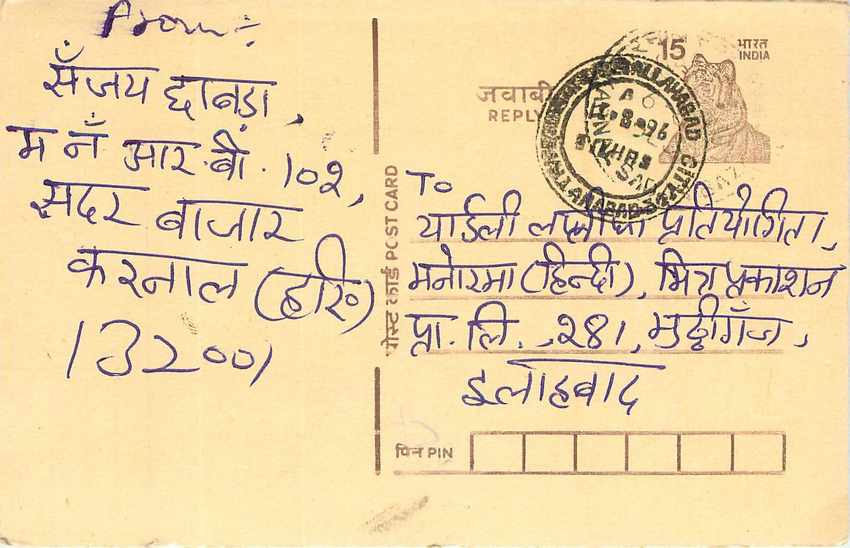 From :-
सँजय छाबड़ा,
म नँ आर. बी. 102,
सदर बाजार
करनाल (हरि०)
132001
पोस्ट कार्ड POST CARD
15
भारत
INDIA
जवाबी
REPLY
ALLAHABAD CITY
To
यार्डली प्रतियोगिता,
मनोरमा (हिन्दी), मित्र प्रकाशन
प्रा. लि., 281, मुट्ठीगँज,
इलाहबाद
पिन PIN